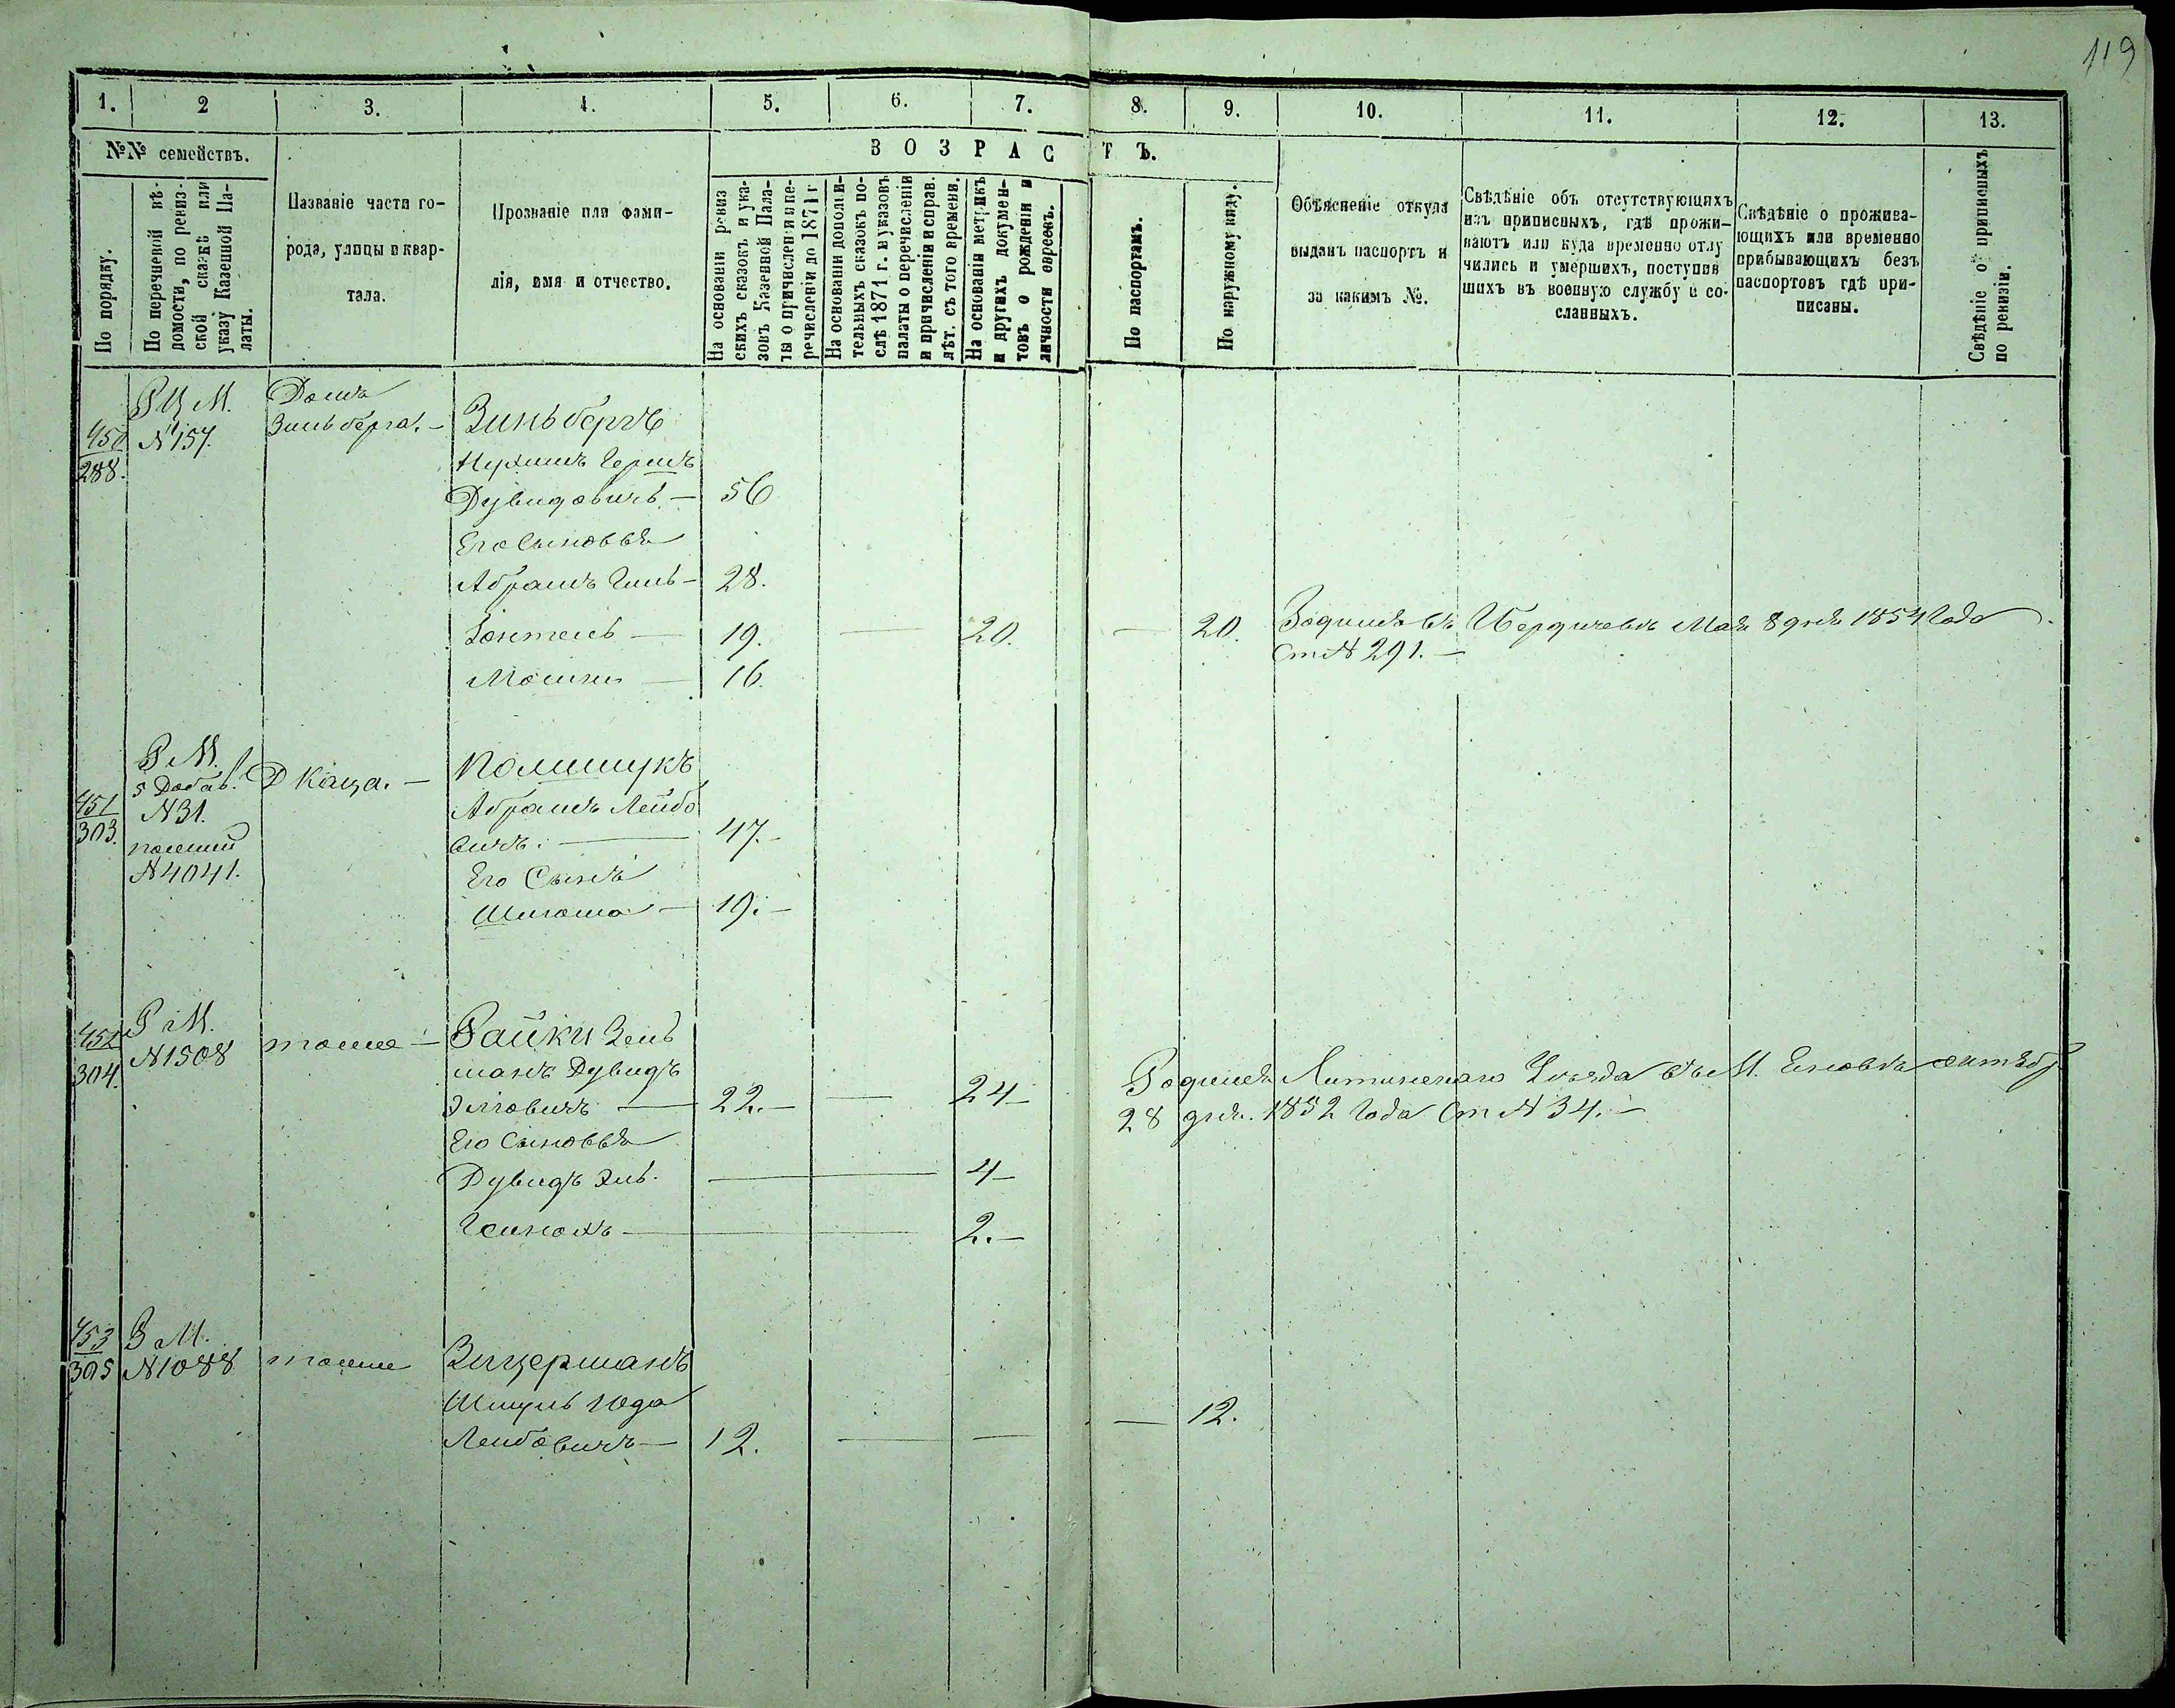 119
1. 2 3. 4. 5. 6. 7. 8. 9. 10. 11. 12. 13.
№№ семействъ.
ВОЗРАСТЪ.
По порядку.
По перечневой вѣ-
домости, по ревиз-
ской сказкѣ или
указу Казенной Па-
латы.
Названіе части го-
рода, улицы и квар-
тала.
Прозваніе или фами-
лія, имя и отчество.
На основаніи ревиз
скихъ сказокъ и ука-
зовъ Казенной Пала-
ты о причисленіи и пе-
речисленіи до 1871 г
На основаніи дополни-
тельныхъ сказокъ по-
слѣ 1871 г. и указовъ
палаты о перечисленіи
и причисленіи и справ.
лѣт. съ того времени.
На основаніи метрикъ
и другихъ докумен-
товъ о рожденіи и
личности евреевъ.
По паспортамъ.
По наружному виду.
Объясненіе откуда
выданъ паспортъ и
за какимъ №.
Свѣдѣніе объ отсутствующихъ
изъ приписныхъ, гдѣ прожи-
ваютъ или куда временно отлу
чились и умершихъ, поступив
шихъ въ военную службу и со-
сланныхъ.
Свѣдѣніе о прожива-
ющихъ или временно
прибывающихъ безъ
паспортовъ гдѣ при-
писаны.
Свѣдѣніе о приписныхъ
по ревизіи.
450
288.
№157.
Домъ
Зильберга. —
Зильбергъ
Нухимъ Гершъ
Дувидовичъ. — 56
Его Сыновья
Абрамъ — 28.
19. — 20. — 20. Родился въ Бердичевѣ Мая 8 дня 1854 Года
Ст № 291. —
Мошко — 16.
451
303.
Р М.
5 Добав.
№31.
№4041.
Д Каца. —
Полищукъ
Абрамъ Лейбо
вичъ. — 47. —
Его Сынъ
19. —
452
304.
Р М.
№1508
тоже —
Райки Зель
манъ Дувидъ
22. — — 24 —
Родился Литинскаго Уѣзда въ М.
28 дня. 1852 Года Ст № 34. —
Его Сыновья
Дувидъ — 4 —
— 2. —
453
305
З М.
№1088
тоже
Зицерманъ
Шмуль Юда
Лейбовичъ — 12. — — — 12.